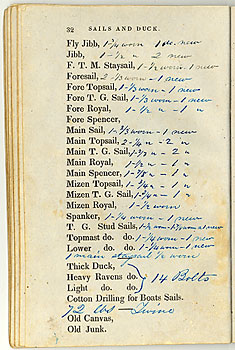 32 SAILS AND DUCK.
Fly Jibb, 1-¼ worn 1 do. new
Jibb, 1-½ " 2 new
F. T. M. Staysail, 1-½ worn - 1 new
Foresail, 2-⅓ worn - 1 new
Fore Topsail, 1-⅓ worn - 1 new
Fore T. G. Sail, 1-⅓ worn - 1 new
Fore Royal, 1-½ " - 1 "
Fore Spencer,
Main Sail, 1-⅓ worn - 1 new
Main Topsail, 2-¼ " - 2 "
Main T. G. Sail, 1-⅓ " - 2 "
Main Royal, 1-½ " - 1 "
Main Spencer, 1-⅞ " - 1 "
Mizen Topsail, 1-¼ " 1 "
Mizen T. G. Sail, 1-¼ " 1 "
Mizen Royal, 1-½ worn
Spanker, 1-¼ worn - 1 new
T. G. Stud Sails, worn at new
Topmast do. do. 1-¼ worn - 1 new
Lower do. do. 1-¼ worn - 1 new
1 main staysail ½ worn
Thick Duck,
Heavy Ravens do. 14 Bolts
Light do. do.
Cotton Drilling for Boats Sails.
72 lbs - Twine
Old Canvas,
Old Junk.